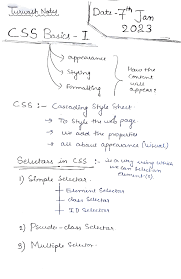 Turivath Notes
Date - 7th Jan 2023
CSS Basics - I
→ appearance
→ Styling
→ Formatting
How the content will appear?
CSS :- Cascading Style Sheet
→ To style the web page
→ we add the properties
→ All about appearance (visual)
Selectors in CSS :- is a way using which we can select an element(s)
1) Simple Selector
→ Element Selector
→ class Selector
→ ID Selector
2) Pseudo-class Selector
3) Multiple Selector